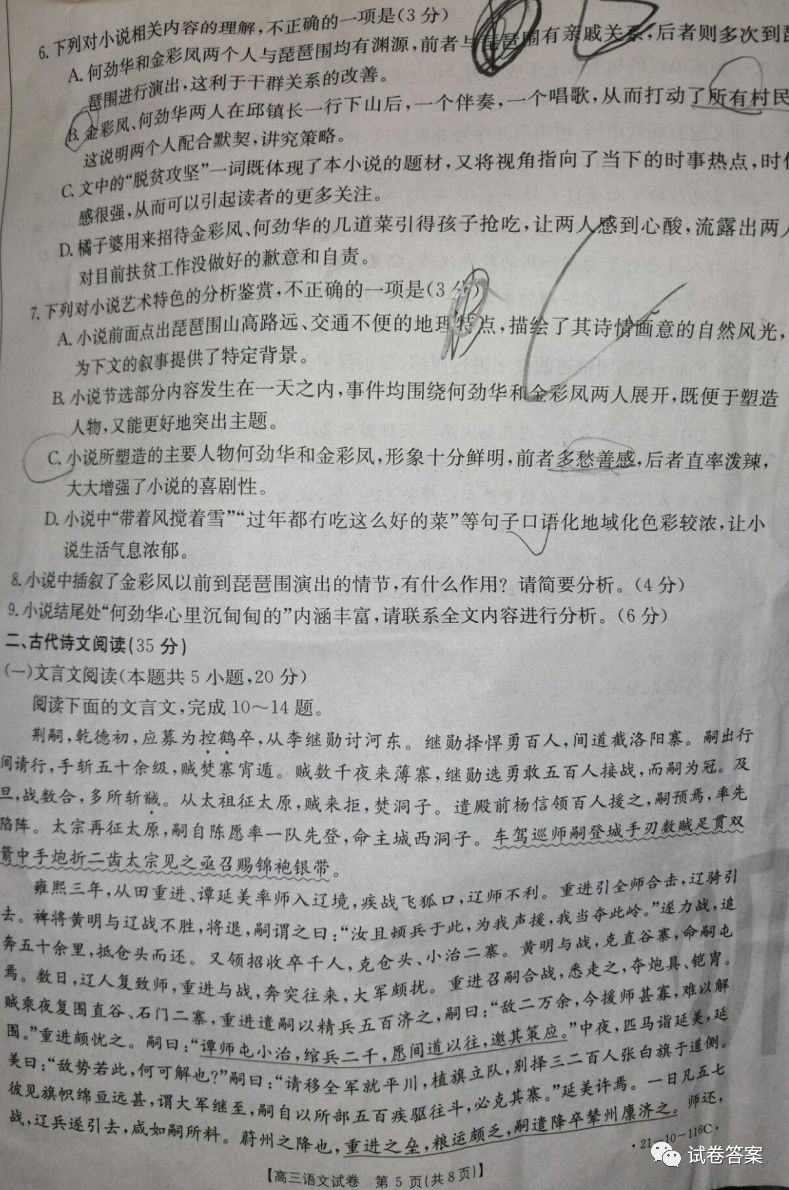 6.下列对小说相关内容的理解,不正确的一项是(3分)
A.何劲华和金彩凤两个人与琵琶围均有渊源,前者与琵琶围有亲戚关系,后者则多次到琵
琶围进行演出,这利于干群关系的改善。
B.金彩凤、何劲华两人在邱镇长一行下山后,一个伴奏,一个唱歌,从而打动了所有村民
这说明两个人配合默契,讲究策略。
C.文中的“脱贫攻坚”一词既体现了本小说的题材,又将视角指向了当下的时事热点,时代
感很强,从而可以引起读者的更多关注。
D.橘子婆用来招待金彩凤、何劲华的几道菜引得孩子抢吃,让两人感到心酸,流露出两人
对目前扶贫工作没做好的歉意和自责。
7.下列对小说艺术特色的分析鉴赏,不正确的一项是(3分)
A.小说前面点出琵琶围山高路远、交通不便的地理特点,描绘了其诗情画意的自然风光,
为下文的叙事提供了特定背景。
B.小说节选部分内容发生在一天之内,事件均围绕何劲华和金彩凤两人展开,既便于塑造
人物,又能更好地突出主题。
C.小说所塑造的主要人物何劲华和金彩凤,形象十分鲜明,前者多愁善感,后者直率泼辣,
大大增强了小说的喜剧性。
D.小说中“带着风搅着雪”“过年都冇吃这么好的菜”等句子口语化地域化色彩较浓,让小
说生活气息浓郁。
8.小说中插叙了金彩凤以前到琵琶围演出的情节,有什么作用?请简要分析。(4分)
9.小说结尾处“何劲华心里沉甸甸的”内涵丰富,请联系全文内容进行分析。(6分)
二、古代诗文阅读(35分)
(一)文言文阅读(本题共5小题,20分)
阅读下面的文言文,完成10~14题。
荆嗣,乾德初,应募为控鹤卒,从李继勋讨河东。继勋择悍勇百人,间道截洛阳寨。嗣出行
间请行,手斩五十余级,贼焚寨宵遁。贼数千夜来薄寨,继勋选勇敢五百人接战,而嗣为冠。及
旦,战数合,多所斩馘。从太祖征太原,贼来拒,焚洞子。遣殿前杨信领百人援之,嗣预焉,率先
陷阵。太宗再征太原,嗣自陈愿率一队先登,命主城西洞子。车驾巡师嗣登城手刃数贼足贯双
箭中手炮折二齿太宗见之亟召赐锦袍银带。
雍熙三年,从田重进、谭延美率师入辽境,疾战飞狐口,辽师不利。重进引全师合击,辽骑引
去。裨将黄明与辽战不胜,将退,嗣谓之曰:“汝且顿兵于此,为我声援,我当夺此岭。”遂力战,追
奔五十余里,抵仓头而还。又领招收卒千人,克仓头、小治二寨。黄明与战,克直谷寨,命嗣屯
焉。数日,辽人复致师,重进与战,奔突往来,大军颇扰。重进召嗣合战,悉走之,夺炮具、铠胄。
贼乘夜复围直谷、石门二寨,重进遣嗣以精兵五百济之,嗣曰:“敌二万余,今援师甚寡,难以解
围。”重进颇忧之。嗣曰:“谭师屯小治,绾兵二千,愿间道以往,邀其策应。”中夜,匹马诣延美,延
美曰:“敌势若此,何可解也?”嗣曰:“请移全军就平川,植旗立队,别择三二百人张白旗于道侧。
彼见旗帜绵亘远甚,谓大军继至,嗣自以所部五百疾驱往斗,必克其寨。”延美许焉。一日凡五七
战,辽兵遂引去,咸如嗣所料。蔚州之降也,重进之垒,粮运颇乏,嗣遣降卒辇州廪济之。师还,
【高三语文试卷 第5页(共8页)】
·21-10-116C·
试卷答案